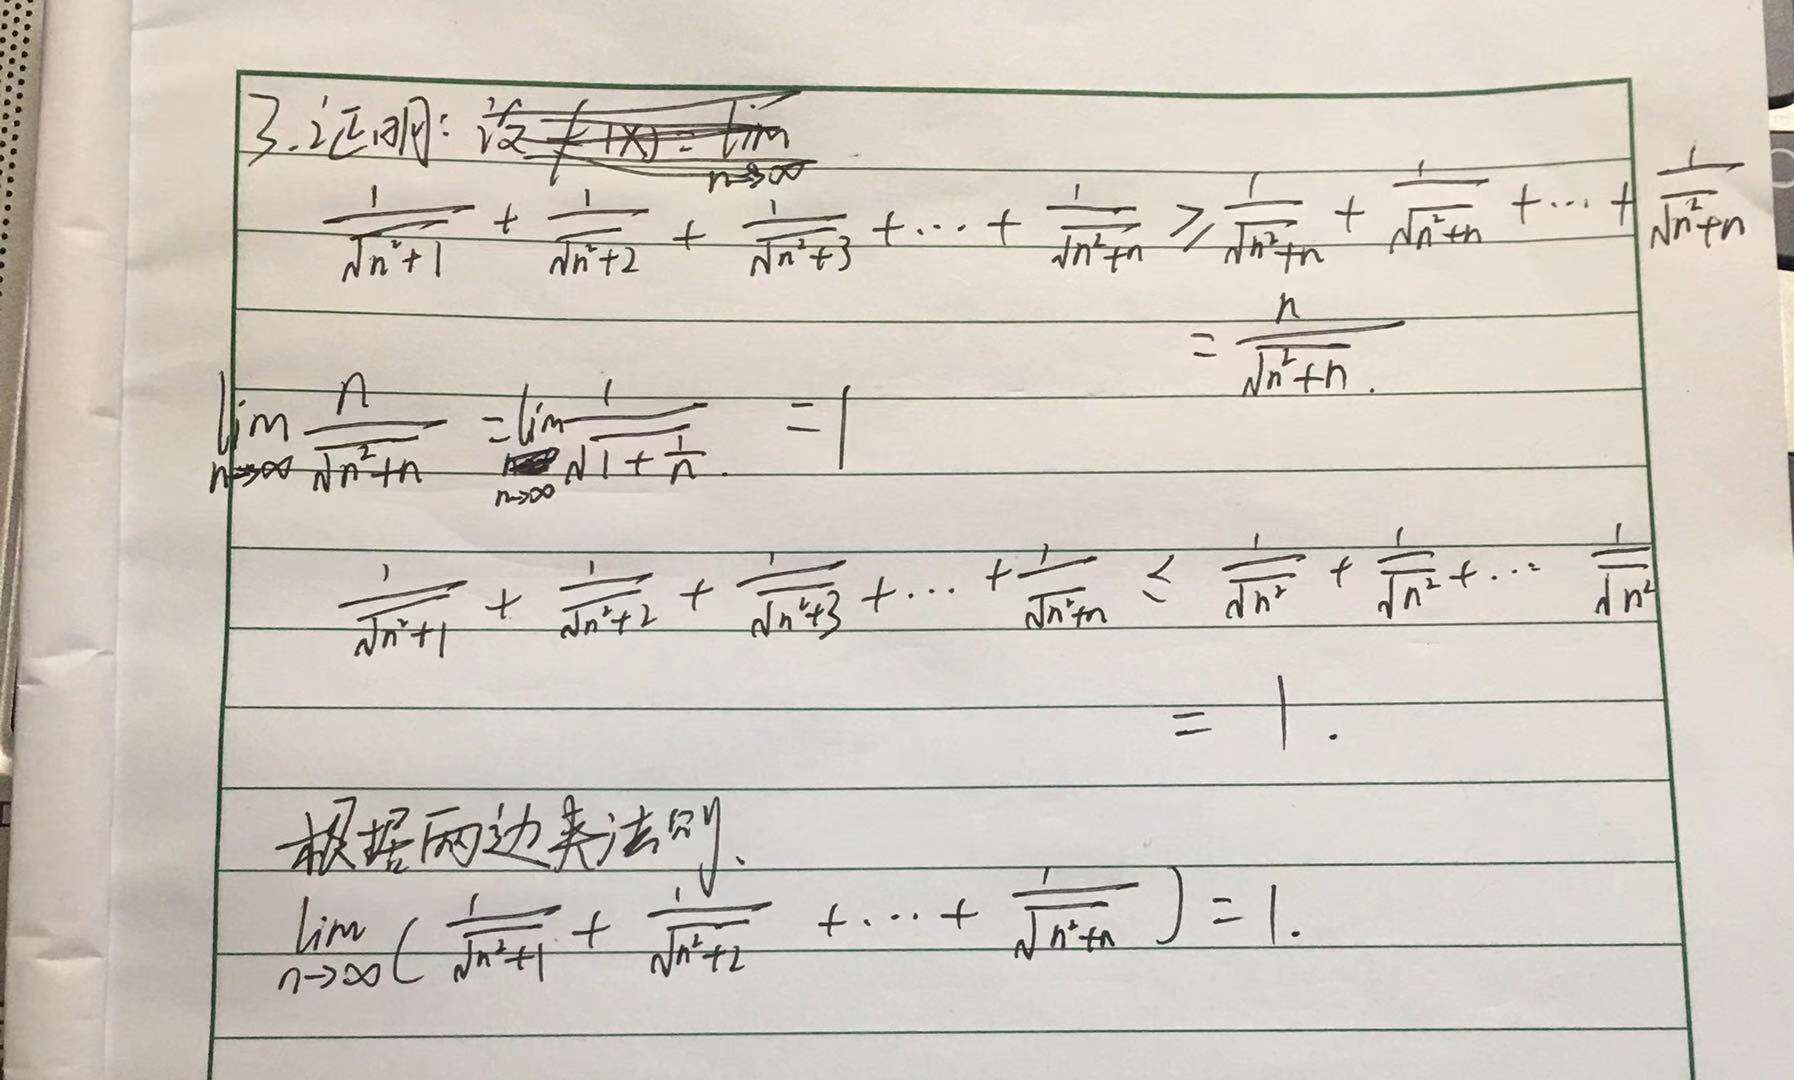 3.证明:
1/√(n²+1) + 1/√(n²+2) + 1/√(n²+3) + ⋯ + 1/√(n²+n) ⩾ 1/√(n²+n) + 1/√(n²+n) + ⋯ + 1/√(n²+n)
= n/√(n²+n).
lim n→∞ n/√(n²+n) = lim n→∞ 1/√(1+1/n). = 1
1/√(n²+1) + 1/√(n²+2) + 1/√(n²+3) + ⋯ + 1/√(n²+n) ≤ 1/√n² + 1/√n² + ⋯ 1/√n²
= 1.
根据两边夹法则、
lim n→∞ ( 1/√(n²+1) + 1/√(n²+2) + ⋯ + 1/√(n²+n) ) = 1.